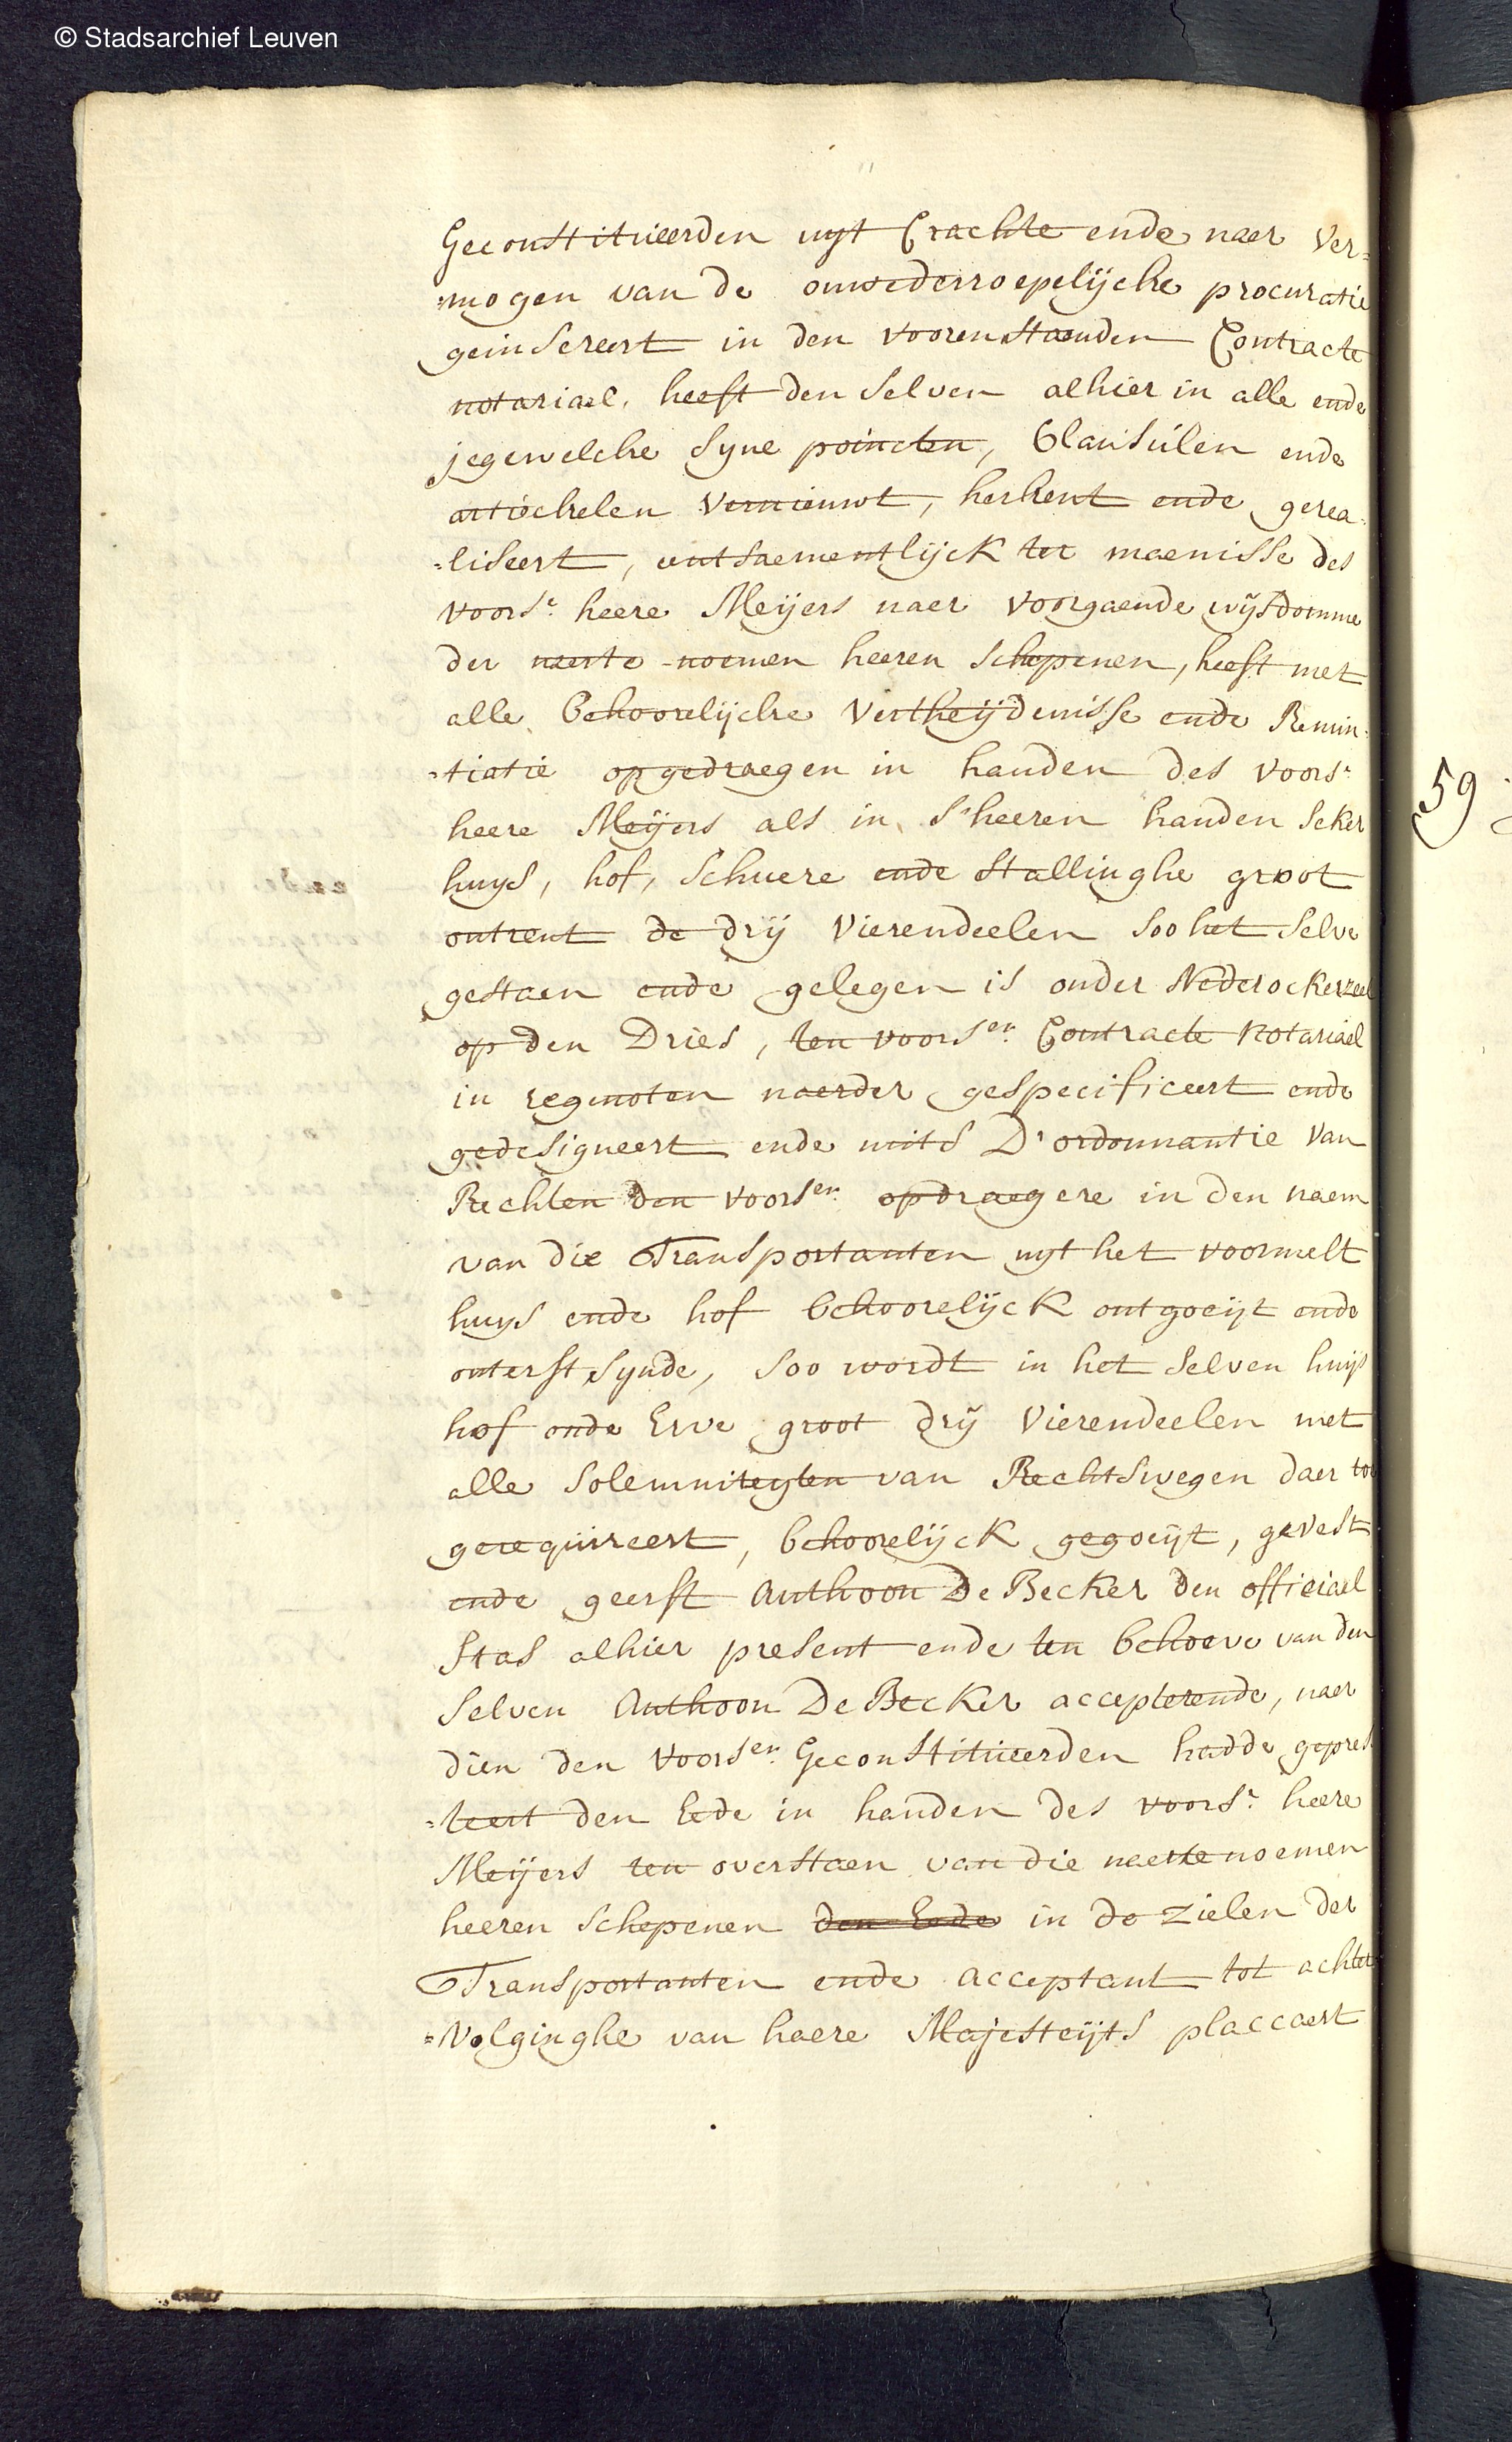 © Stadsarchief Leuven
Geconstitueerden uyt Crachte ende naer Ver=
=mogen van de onwederroepelijcke procuratie
geinsereert in den voorenstaenden Contracte
notariael, heeft den selven alhier in alle ende
jegewelcke syne poincten, Clausúlen ende
artieckelen vernieuwt, herkent ende gerea=
=liseert, entsaementlijck ter maenisse des
voors.r heere Meijers naer voorgaende wijsdomme
der naerte-noemen heeren schepenen, heeft met
alle behoorelijcke vertheijdenisse ende Renun=
=tiatie opgedraegen in handen des voors.r
heere Meijers als in s'heeren handen seker
huys, hof, schuere ende stallinghe groot
ontrent de drij vierendeelen soo het selve
gestaen ende gelegen is onder Nederockerzeel
op den Dries, ten voors.en Contracte notariael
in regenoten naerder gespecificeert ende
gedesigneert ende mits D'ordonnantie van
Rechten den voors.en opdraegere in den naem
van die Transportanten uyt het voormelt
huys ende hof behoorelijck ontgoeijt ende
onterft synde, soo wordt in het selven huijs
hof ende Erve groot drij vierendeelen met
alle solemniteyten van Rechtswegen daer toe
gerequireert, behoorelijck gegoeijt, gevest
ende geerft Anthoon De Becker den officiael
Stas alhier present ende ten behoeve van den
selven Anthoon De Becker accepterende, naer
dien den voors.en Geconstitueerden hadde gepres
=teert den Eede in handen des voors.r heere
Meijers ten overstaen van die naertenoemen
heeren schepenen den Eede in de zielen der
Transportanten ende acceptant tot achter
=volginghe van haere Majesteijts placcaert
59